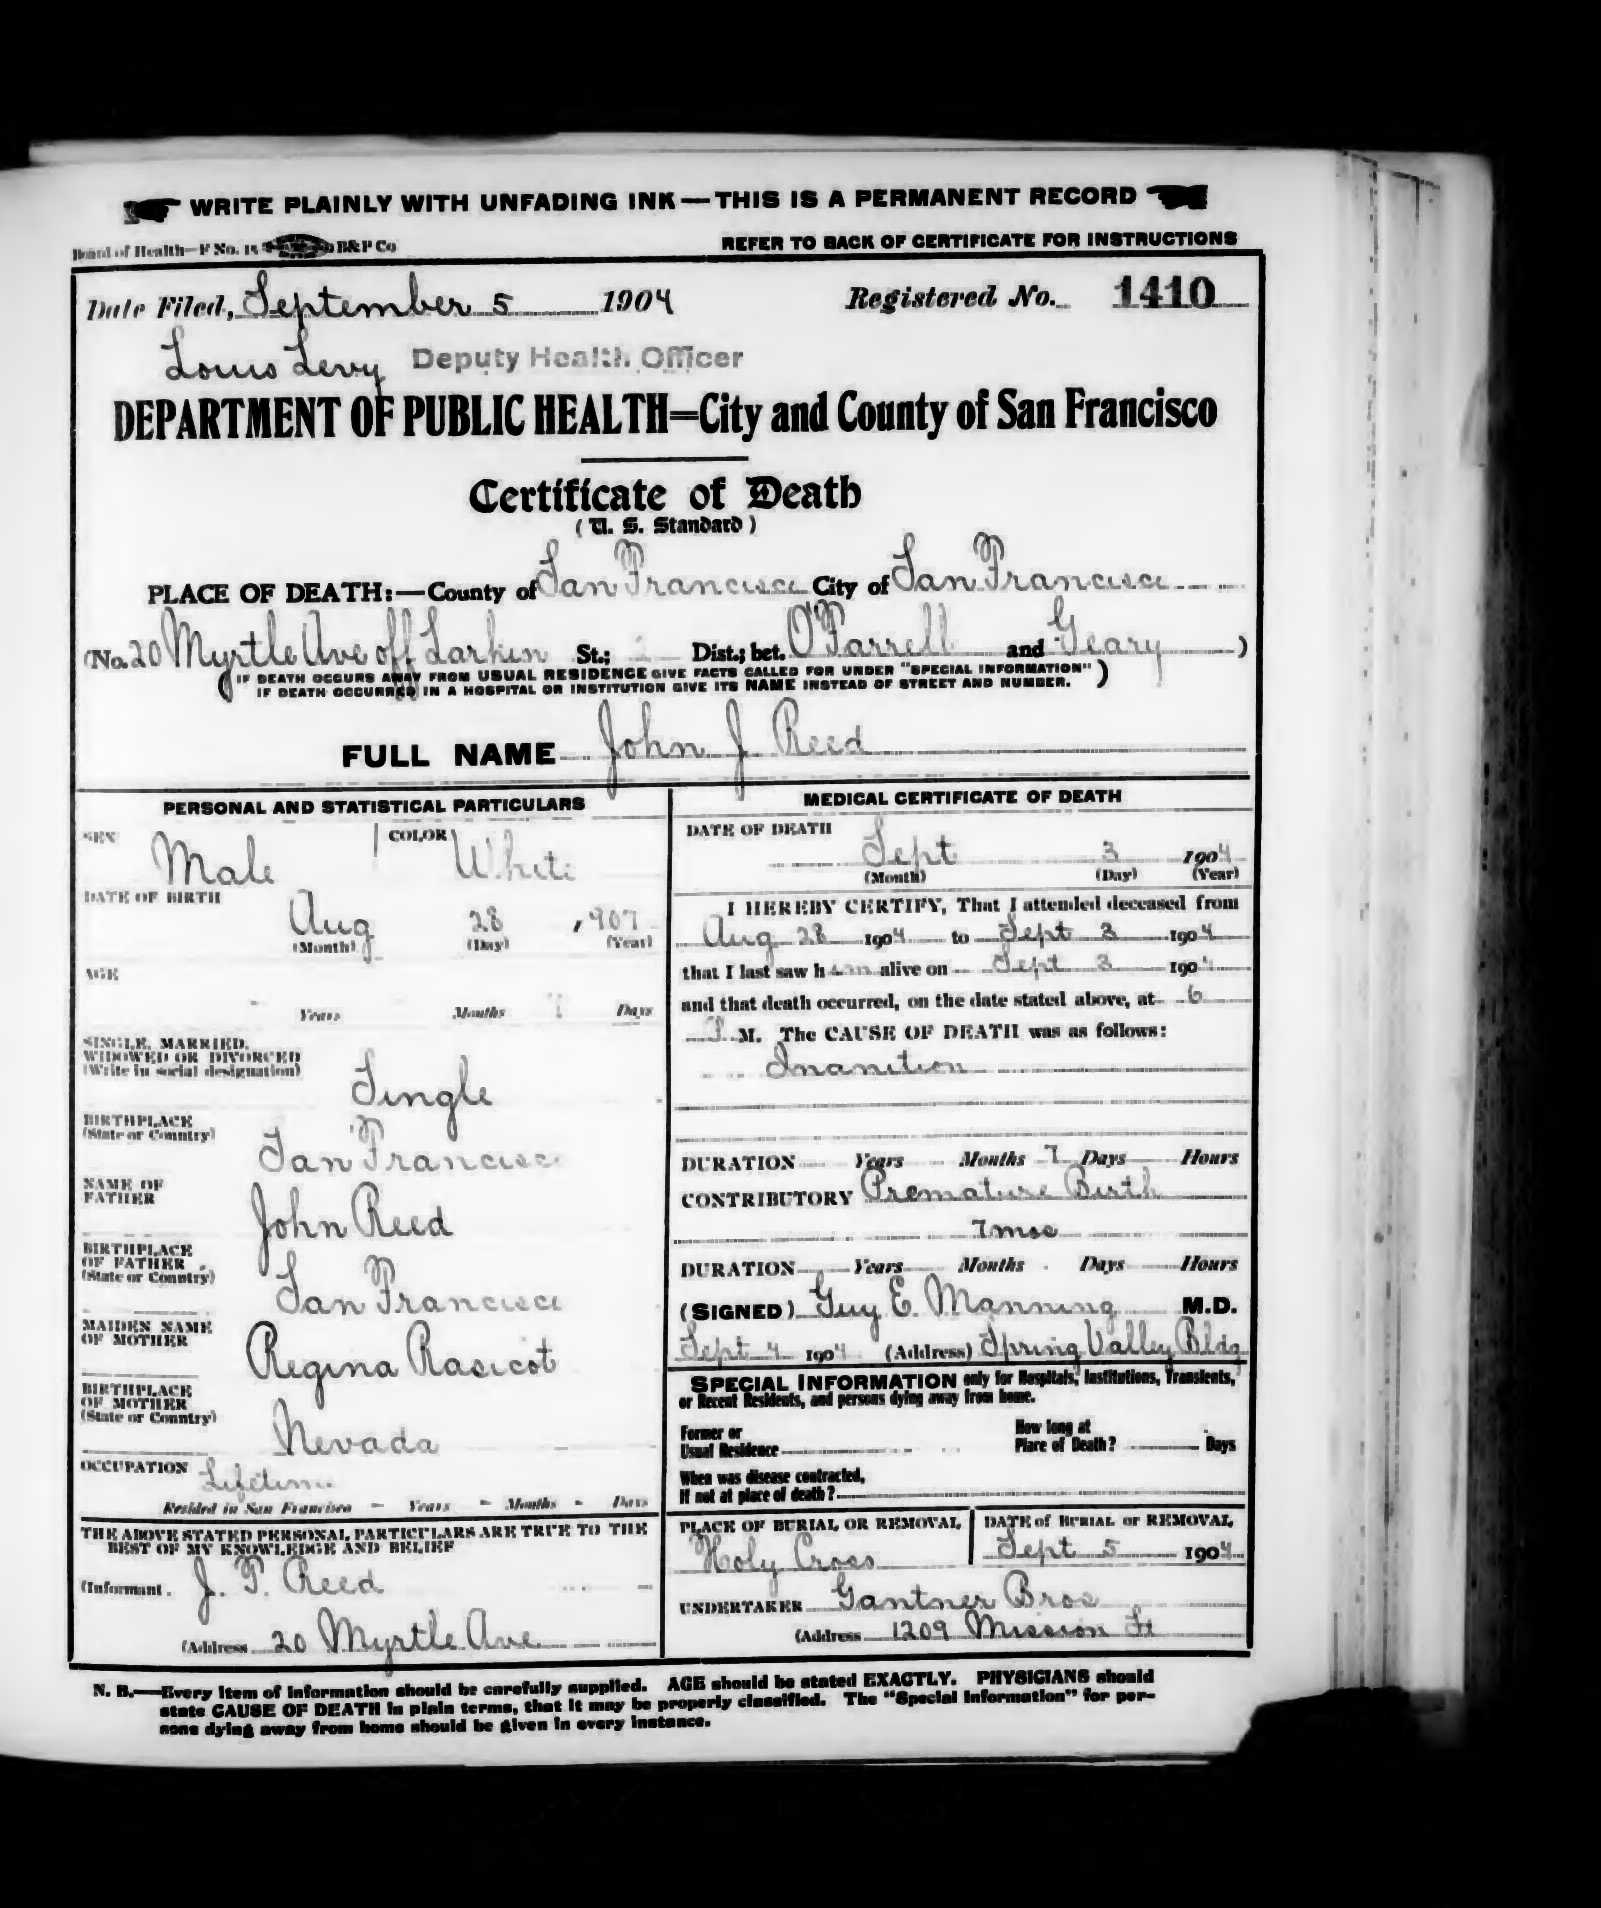 WRITE PLAINLY WITH UNFADING INK—THIS IS A PERMANENT RECORD
Board of Health—F No. 15 B&P Co
REFER TO BACK OF CERTIFICATE FOR INSTRUCTIONS
Date Filed, September 5 1904 Registered No. 1410
Louis Levy Deputy Health Officer
DEPARTMENT OF PUBLIC HEALTH=City and County of San Francisco
Certificate of Death
( U. S. Standard )
PLACE OF DEATH:—County of San Francisco City of San Francisco
(No. 20 Myrtle Ave off Larkin St.; Dist.; bet. O'Farrell and Geary )
( IF DEATH OCCURS AWAY FROM USUAL RESIDENCE GIVE FACTS CALLED FOR UNDER "SPECIAL INFORMATION" )
IF DEATH OCCURRED IN A HOSPITAL OR INSTITUTION GIVE ITS NAME INSTEAD OF STREET AND NUMBER.
FULL NAME John J Reed
PERSONAL AND STATISTICAL PARTICULARS
SEX Male COLOR White
DATE OF BIRTH
Aug 28 , 907
(Month) (Day) (Year)
AGE
Years Months 7 Days
SINGLE, MARRIED,
WIDOWED OR DIVORCED
(Write in social designation)
Single
BIRTHPLACE
(State or Country)
San Francisco
NAME OF
FATHER
John Reed
BIRTHPLACE
OF FATHER
(State or Country)
San Francisco
MAIDEN NAME
OF MOTHER
Regina Rasicot
BIRTHPLACE
OF MOTHER
(State or Country)
Nevada
OCCUPATION Lifetime
Resided in San Francisco – Years – Months – Days
THE ABOVE STATED PERSONAL PARTICULARS ARE TRUE TO THE
BEST OF MY KNOWLEDGE AND BELIEF
(Informant J. P. Reed
(Address 20 Myrtle Ave
MEDICAL CERTIFICATE OF DEATH
DATE OF DEATH
Sept 3 1904
(Month) (Day) (Year)
I HEREBY CERTIFY, That I attended deceased from
Aug 28 1904 to Sept 3 1904
that I last saw him alive on Sept 3 1904
and that death occurred, on the date stated above, at 6
P M. The CAUSE OF DEATH was as follows:
Inanition
DURATION Years Months 7 Days Hours
CONTRIBUTORY Premature Birth
7 mos
DURATION Years Months Days Hours
(SIGNED) Guy E. Manning M.D.
Sept 4 1904 (Address) Spring Valley Bldg
SPECIAL INFORMATION only for Hospitals, Institutions, Transients,
or Recent Residents, and persons dying away from home.
Former or
Usual Residence
How long at
Place of Death? Days
When was disease contracted,
If not at place of death?
PLACE OF BURIAL OR REMOVAL
Holy Cross
DATE of BURIAL or REMOVAL
Sept 5 1904
UNDERTAKER Gantner Bros
(Address 1209 Mission St
N. B.—Every item of information should be carefully supplied. AGE should be stated EXACTLY. PHYSICIANS should
state CAUSE OF DEATH in plain terms, that it may be properly classified. The "Special Information" for per-
sons dying away from home should be given in every instance.